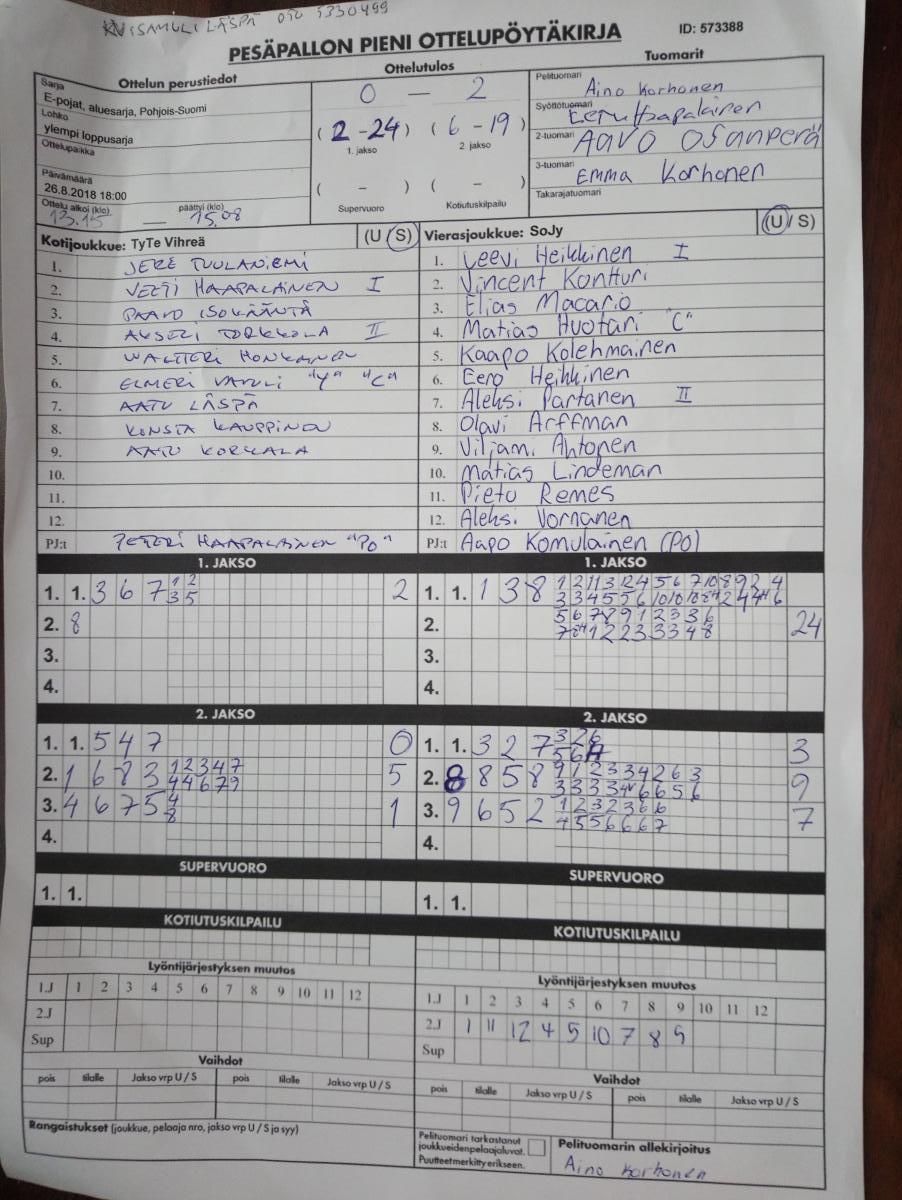 SAMULI LÄSPÄ 050 5330499
PESÄPALLON PIENI OTTELUPÖYTÄKIRJA
ID: 573388
Ottelun perustiedot
Sarja
E-pojat, aluesarja, Pohjois-Suomi
Lohko
ylempi loppusarja
Ottelupaikka
Päivämäärä
26.8.2018 18:00
Ottelu alkoi (klo) päättyi (klo)
13.15 — 15.08
Ottelutulos
0 – 2
(2 - 24) (6 - 19)
1. jakso 2. jakso
( - ) ( - )
Supervuoro Kotiutuskilpailu
Tuomarit
Pelituomari
Aino Korhonen
Syöttötuomari
Eetu Haapalainen
2-tuomari
AAVO OSANPERÄ
3-tuomari
EMMA Korhonen
Takarajatuomari
Kotijoukkue: TyTe Vihreä (U / S)
1. JERE TUULANIEMI
2. VEETI HAAPALAINEN I
3. PAAVO ISOKÄÄNTÄ
4. AKSELI TORKKOLA II
5. WALTTERI HONKANEN
6. ELMERI "V" "C"
7. AATU LÄSPÄ
8. KONSTA KAUPPINEN
9. AATU KORKALA
10.
11.
12.
PJ:t PETERI HAAPALAINEN "PO"
Vierasjoukkue: SoJy (U / S)
1. Leevi Heikkinen I
2. Vincent Kontturi
3. Elias Macario
4. Matias Huotari "C"
5. Kaapo Kolehmainen
6. Eero Heikkinen
7. Aleksi Partanen II
8. Olavi Arffman
9. Viljami Ahtonen
10. Matias Lindeman
11. Pietu Remes
12. Aleksi Vornanen
PJ:t Aapo Komulainen (PO)
1. JAKSO
1. 1. 3 6 7 1 2 2
3 5
2. 8
3.
4.
1. JAKSO
1. 1. 1 3 8
2. 24
3.
4.
2. JAKSO
1. 1. 5 4 7 0
2. 1 6 8 3 1 2 3 4 7 5
4 4 6 7 9
3. 4 6 7 5 4 1
8
4.
2. JAKSO
1. 1. 3 2 7 3 2 6 3
5 6 H
2. 8 8 5 8 9 1 2 3 3 4 2 6 3 9
3. 9 6 5 2 1 2 3 2 3 6 6 7
4 5 5 6 6 6 7
4.
SUPERVUORO
1. 1.
SUPERVUORO
1. 1.
KOTIUTUSKILPAILU
KOTIUTUSKILPAILU
Lyöntijärjestyksen muutos
1.J 1 2 3 4 5 6 7 8 9 10 11 12
2.J
Sup
Lyöntijärjestyksen muutos
1.J 1 2 3 4 5 6 7 8 9 10 11 12
2.J 1 11 12 4 5 10 7 8 9
Sup
Vaihdot
pois tilalle Jakso vrp U / S pois tilalle Jakso vrp U / S
Vaihdot
pois tilalle Jakso vrp U / S pois tilalle Jakso vrp U / S
Rangaistukset (joukkue, pelaaja nro, jakso vrp U / S ja syy)
Pelituomari tarkastanut
joukkueidenpelaajaluvat.
Puutteetmerkittyerikseen.
Pelituomarin allekirjoitus
Aino Korhonen